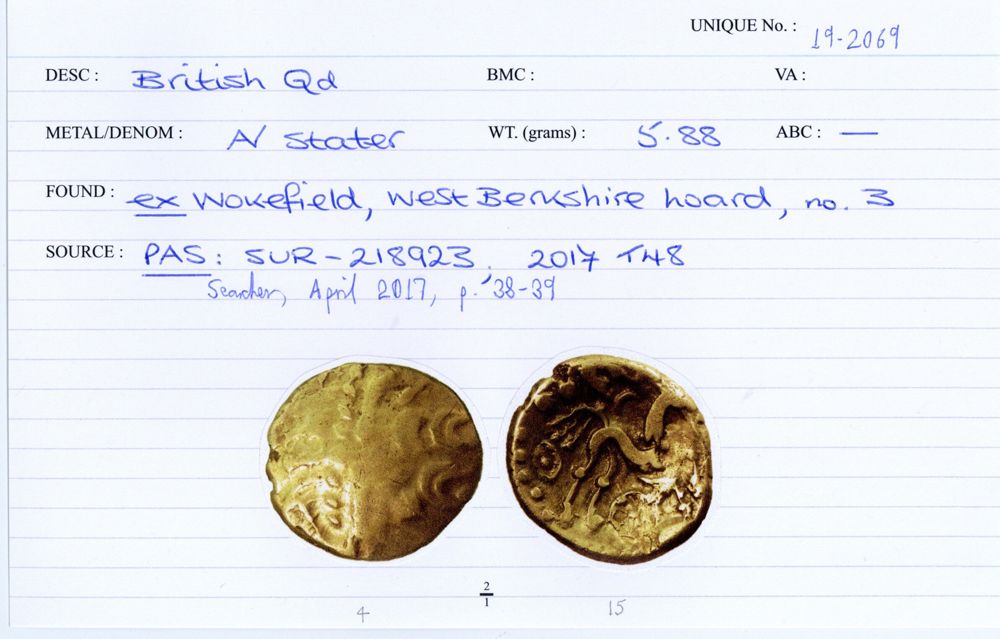 UNIQUE No. : 19-2069
DESC : British Qd BMC : VA :
METAL/DENOM : AV stater WT. (grams) : 5.88 ABC : —
FOUND : ex Wokefield, West Berkshire hoard, no. 3
SOURCE : PAS: SUR-218923, 2017 T48
Searcher, April 2017, p. 38-39
2
1
4 15